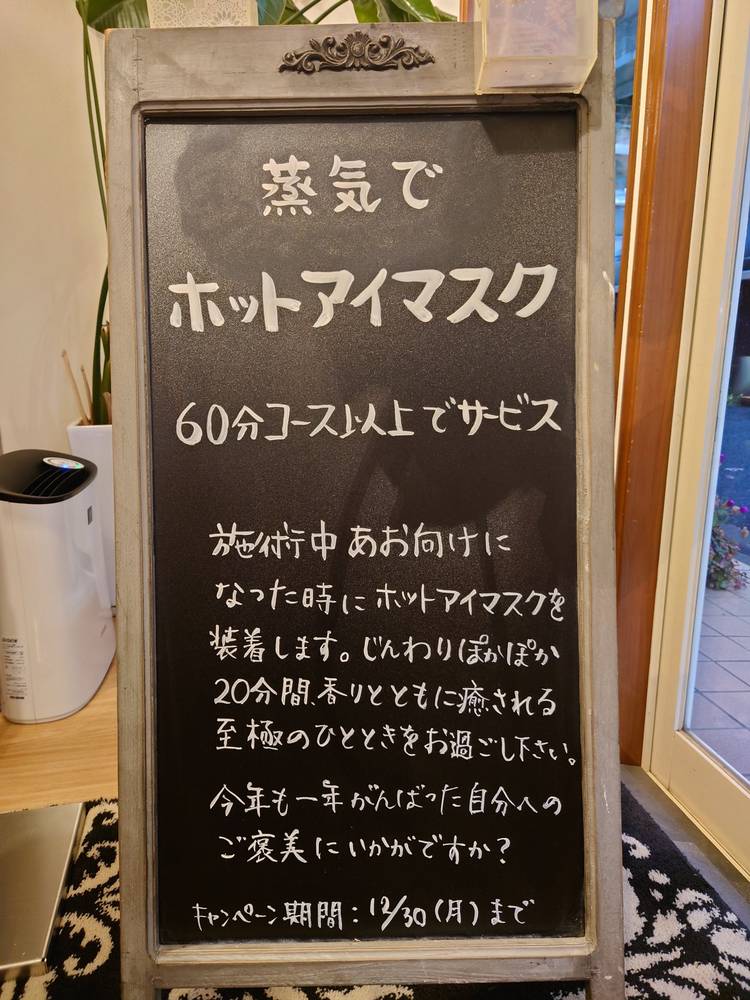 蒸気で
ホットアイマスク
60分コース以上でサービス
施術中あお向けに
なった時にホットアイマスクを
装着します。じんわりぽかぽか
20分間、香りとともに癒される
至極のひとときをお過ごし下さい。
今年も一年がんばった自分への
ご褒美にいかがですか?
キャンペーン期間:12/30(月)まで